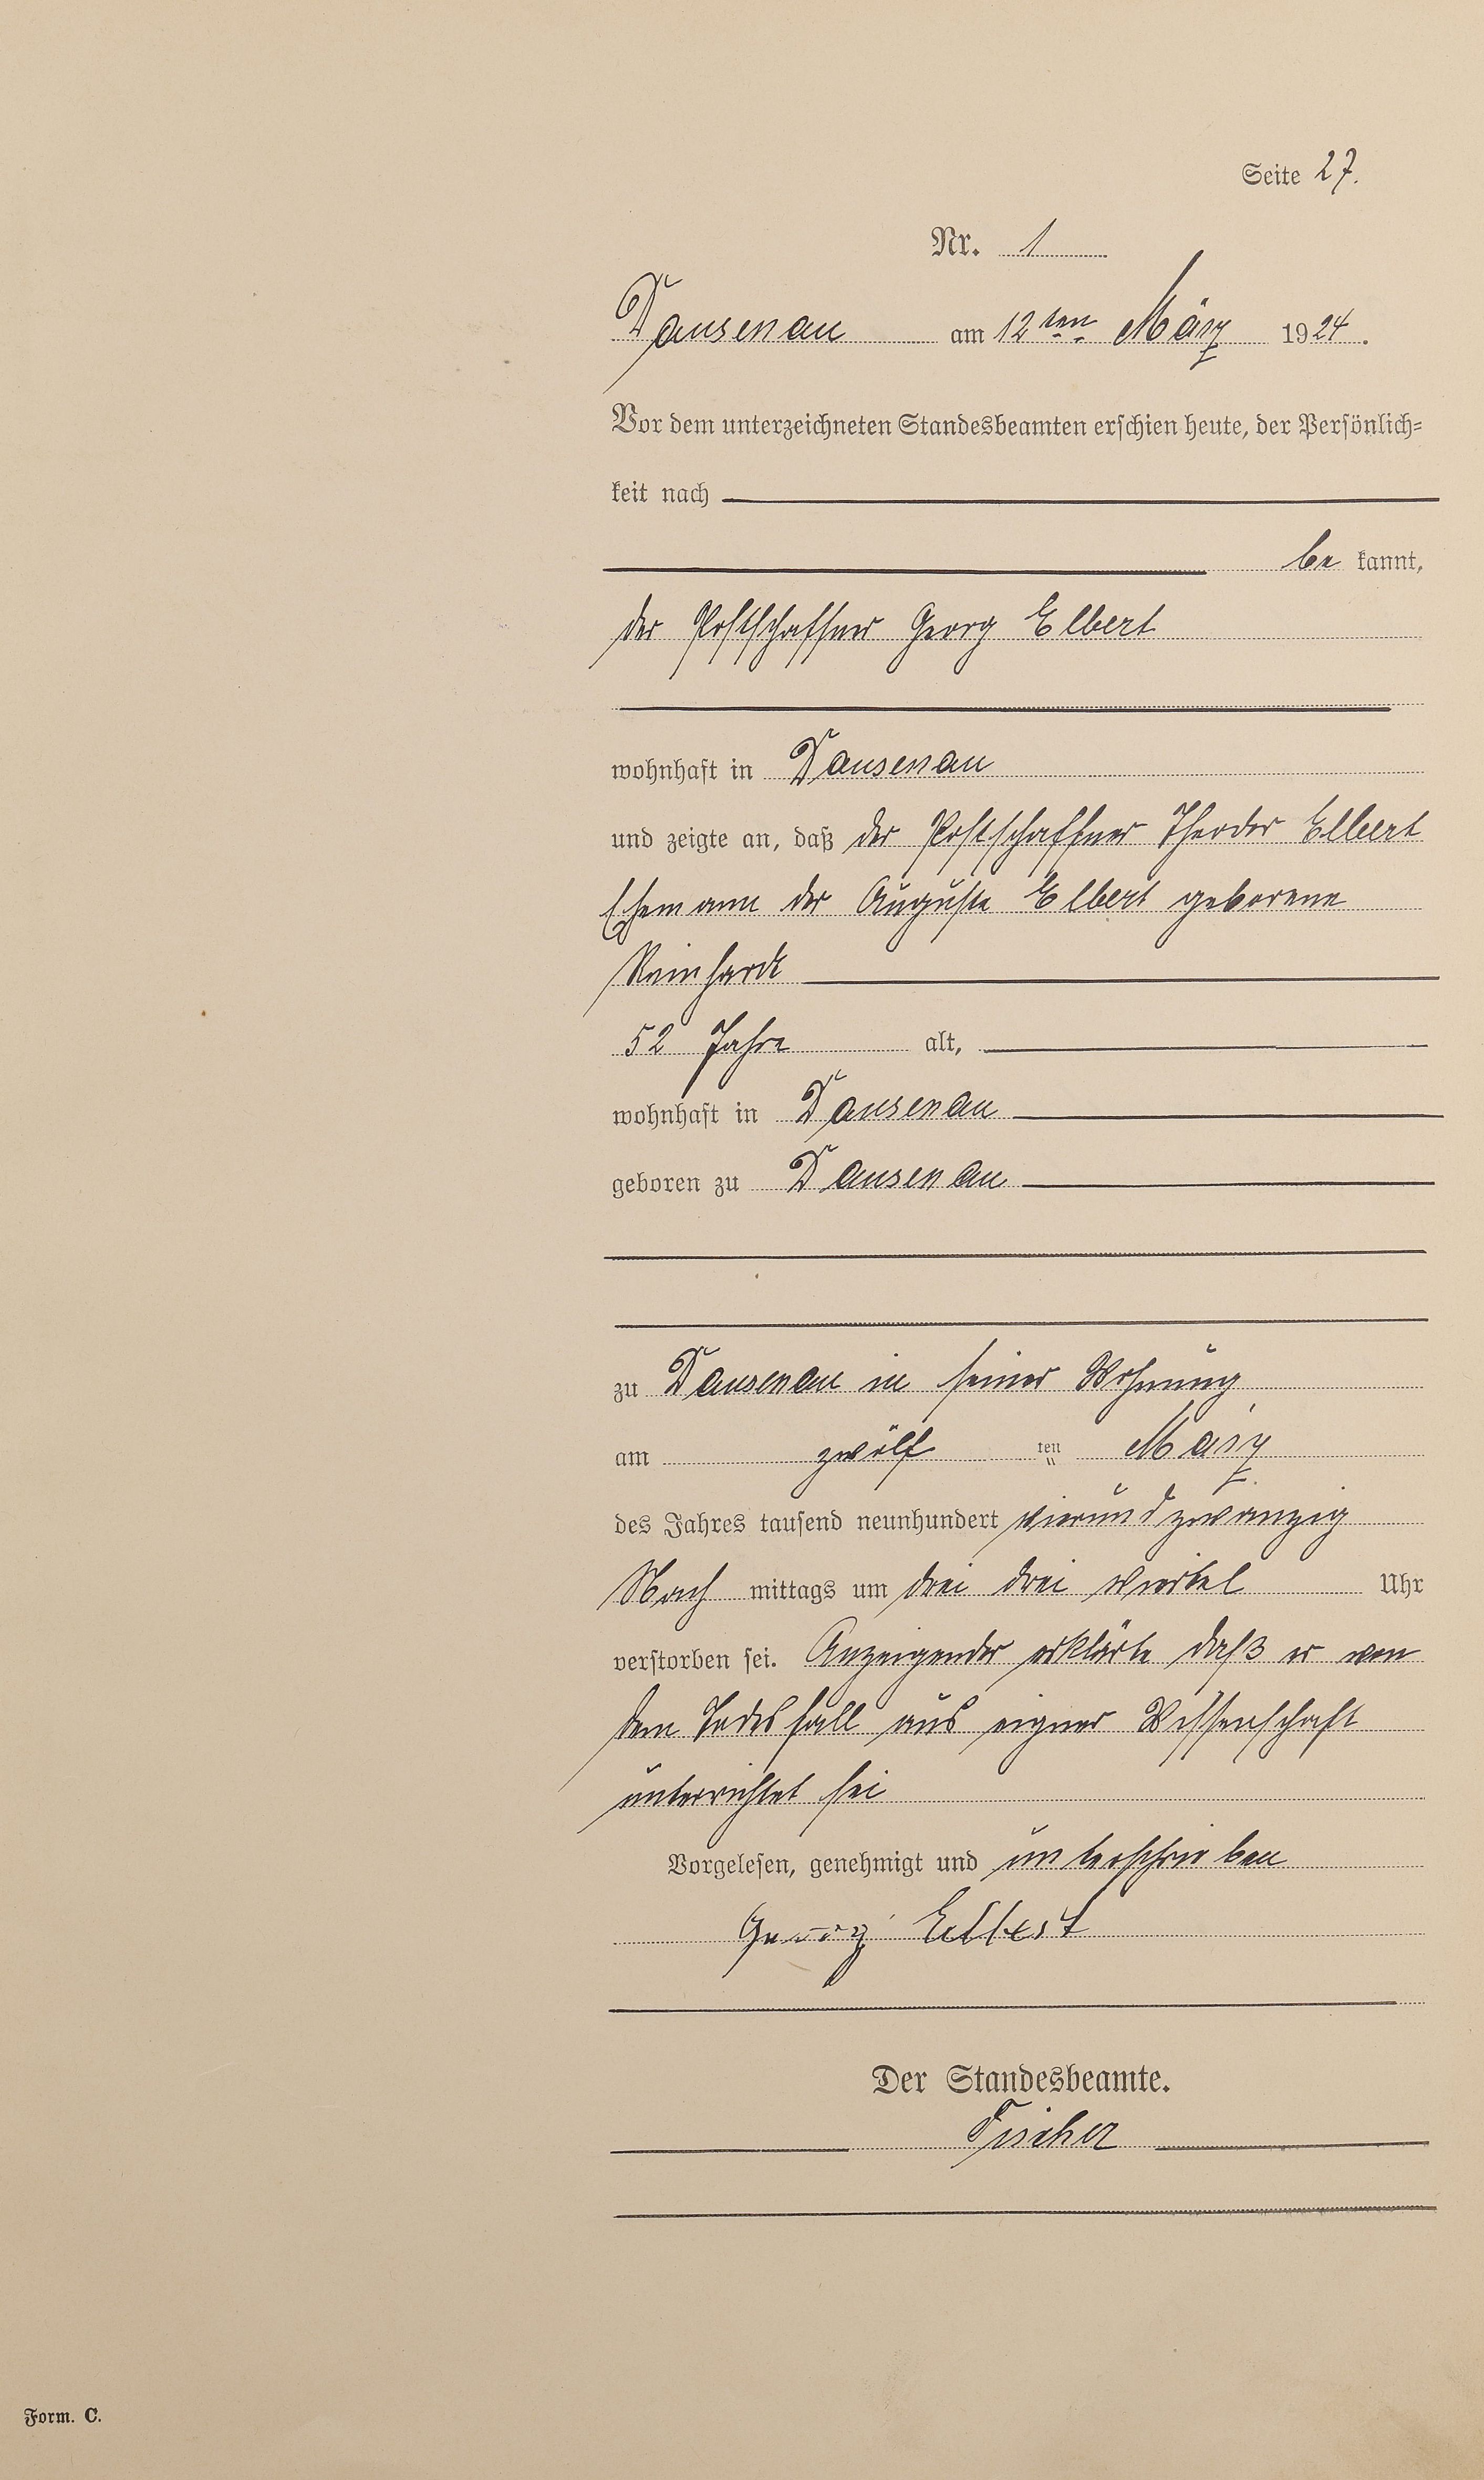 Seite 27.
Nr. 1
Dausenau am 12ten März 1924.
Vor dem unterzeichneten Standesbeamten erschien heute, der Persönlich-
keit nach
be kannt,
der Postschaffner Georg Elbert
wohnhaft in Dausenau
und zeigte an, daß der Postschaffner Theodor Elbert
Ehemann der Auguste Elbert geborene
Reinhardt
52 Jahre alt,
wohnhaft in Dausenau
geboren zu Dausenau
zu Dausenau in seiner Wohnung
am zwölf ten März
des Jahres tausend neunhundert vierundzwanzig
Nach mittags um drei drei viertel Uhr
verstorben sei. Anzeigender erklärte daß er von
dem Todesfall aus eigner Wissenschaft
unterrichtet sei
Vorgelesen, genehmigt und unterschrieben
Georg Elbert
Der Standesbeamte.
Fischer
Form. C.